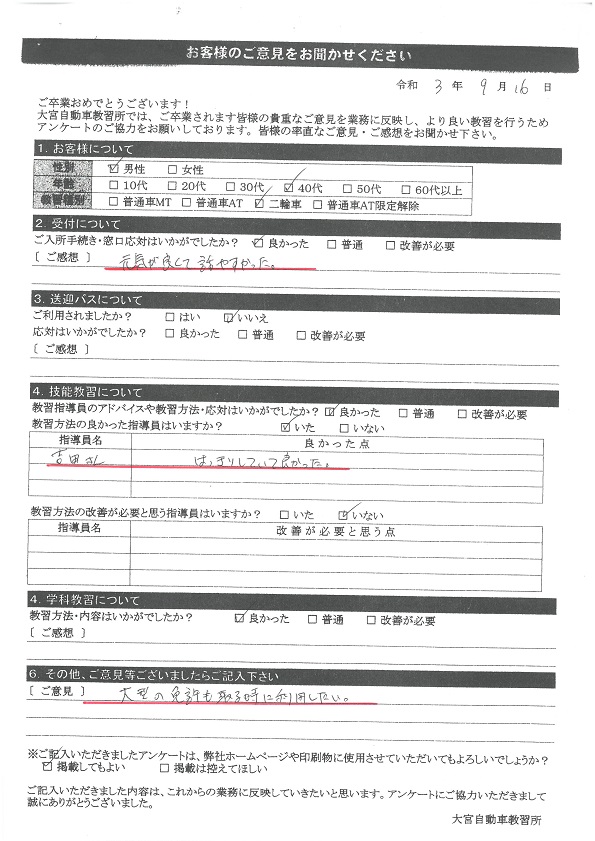 お客様のご意見をお聞かせください
令和 3 年 9 月 16 日
ご卒業おめでとうございます！
大宮自動車教習所では、ご卒業されます皆様の貴重なご意見を業務に反映し、より良い教習を行うため
アンケートのご協力をお願いしております。皆様の率直なご意見・ご感想をお聞かせ下さい。
1. お客様について
性別 ☑男性 □女性
年齢 □10代 □20代 □30代 ☑40代 □50代 □60代以上
教習種別 □普通車MT □普通車AT ☑二輪車 □普通車AT限定解除
2. 受付について
ご入所手続き・窓口応対はいかがでしたか？ ☑良かった □普通 □改善が必要
［ ご感想 ］ 元気が良くて話やすかった。
3. 送迎バスについて
ご利用されましたか？ □はい ☑いいえ
応対はいかがでしたか？ □良かった □普通 □改善が必要
［ ご感想 ］
4. 技能教習について
教習指導員のアドバイスや教習方法・応対はいかがでしたか？ ☑良かった □普通 □改善が必要
教習方法の良かった指導員はいますか？ ☑いた □いない
指導員名 良かった点
吉田さん はっきりしていて良かった。
教習方法の改善が必要と思う指導員はいますか？ □いた ☑いない
指導員名 改善が必要と思う点
4. 学科教習について
教習方法・内容はいかがでしたか？ ☑良かった □普通 □改善が必要
［ ご感想 ］
6. その他、ご意見等ございましたらご記入下さい
［ ご意見 ］ 大型の免許も取る時に利用したい。
※ご記入いただきましたアンケートは、弊社ホームページや印刷物に使用させていただいてもよろしいでしょうか？
☑掲載してもよい □掲載は控えてほしい
ご記入いただきました内容は、これからの業務に反映していきたいと思います。アンケートにご協力いただきまして
誠にありがとうございました。
大宮自動車教習所